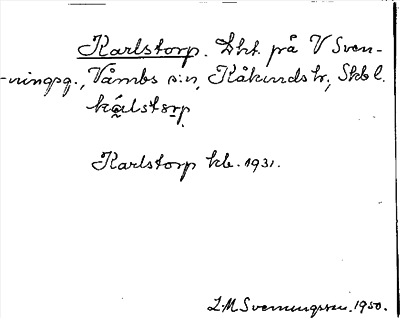 Karlstorp. Lht. på V Sven-
-ningsg., Våmbs s:n, Kåkinds hr, Skbl.
kálstorp
Karlstorp kb. 1931.
L.M Svenungsson. 1950.